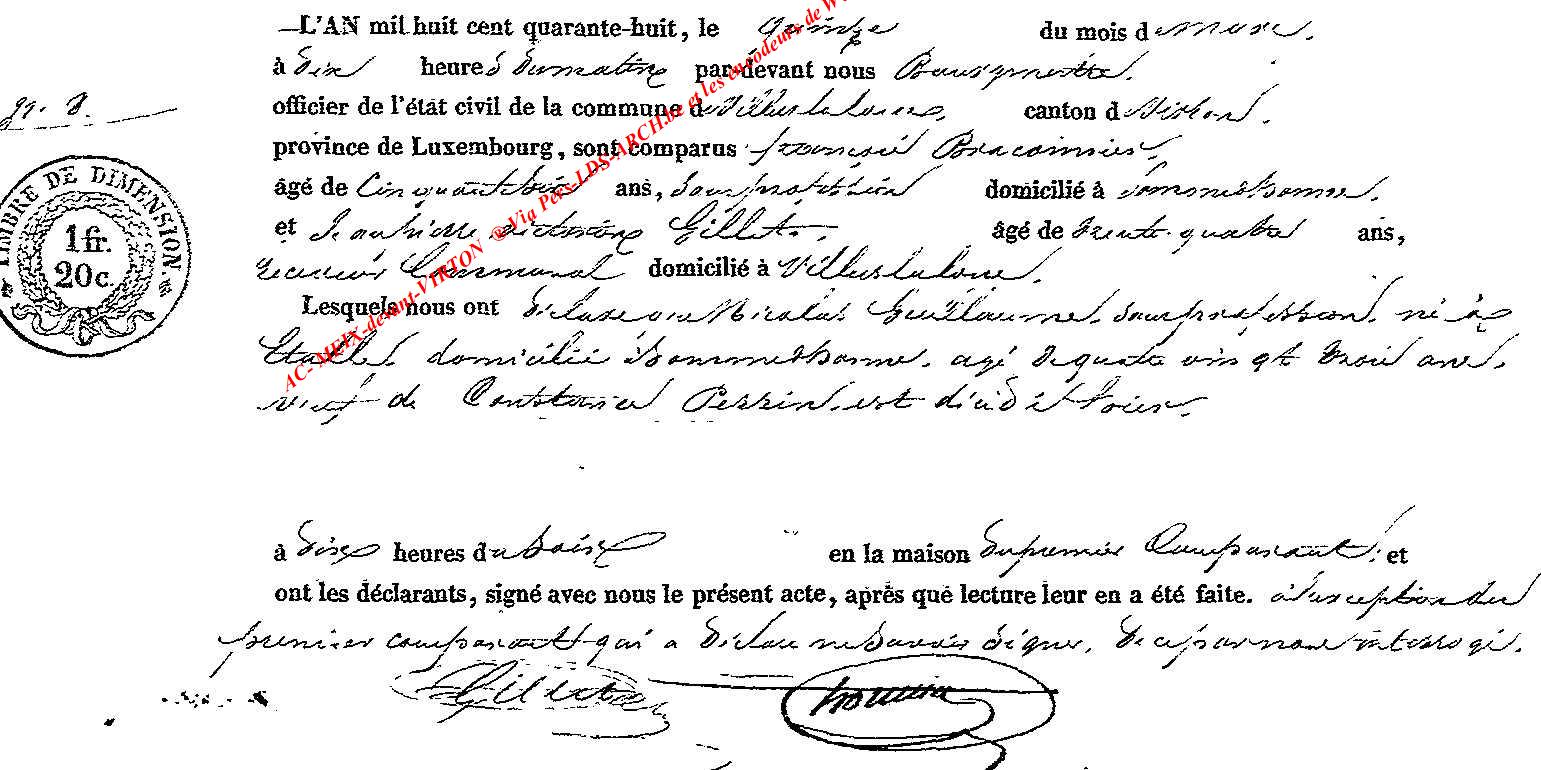 L'AN mil huit cent quarante-huit, le quinze du mois de Mars.
à Dix heures du matin par devant nous Bourgmestre.
officier de l'état civil de la commune de Villerslaloue, canton de Virton.
province de Luxembourg, sont comparus françois Braconnier,
No. 8.
âgé de Cinquante trois ans, sans profession domicilié à Sommethonne.
et Jean pierre victorin Gillet. âgé de trente-quatre ans,
receveur Communal domicilié à Villerslaloue.
Lesquels nous ont déclaré que Nicolas Guillaume, sans profession, né à
Etalle domicilié à Sommethonne, agé de quatre vingt trois ans,
veuf de Constance Perrin, est décédé hier.
à dix heures du Soir en la maison du premier Comparant, et
ont les déclarants, signé avec nous le présent acte, après que lecture leur en a été faite. à l'exception du
premier comparant qui a déclaré ne Savoir Signer, de ce par nous interrogé.
Gillet
TIMBRE DE DIMENSION.
1 fr.
20 c.
AC-MEIX-devant-VIRTON ®Via Pers-LDS-ARCH.be et les encodeurs de